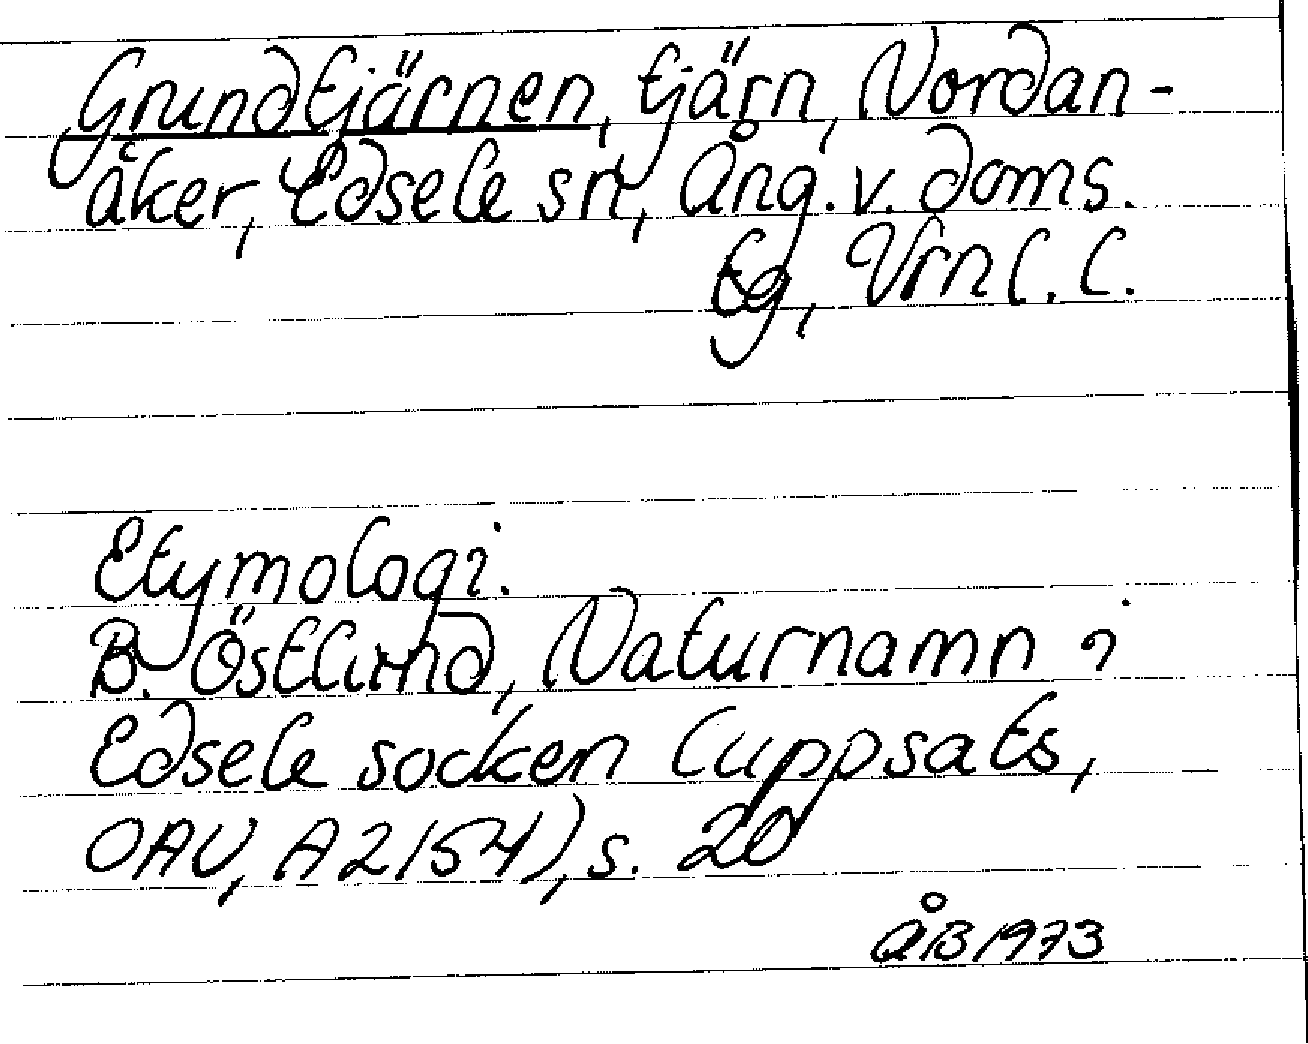 Grundtjärnen, tjärn, Nordan-
åker, Edsele sn, Ång. v. doms.
tg, Vrnl. l.
Etymologi.
B. Östlund, Naturnamn i
Edsele socken (uppsats,
OAU, A2154), s. 20
ÅB 1973